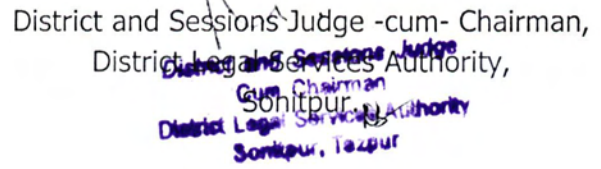 District and Sessions Judge -cum- Chairman,
District Legal Services Authority,
Sonitpur.
District and Sessions Judge
Cum Chairman
District Legal Services Authority
Sonitpur, Tezpur